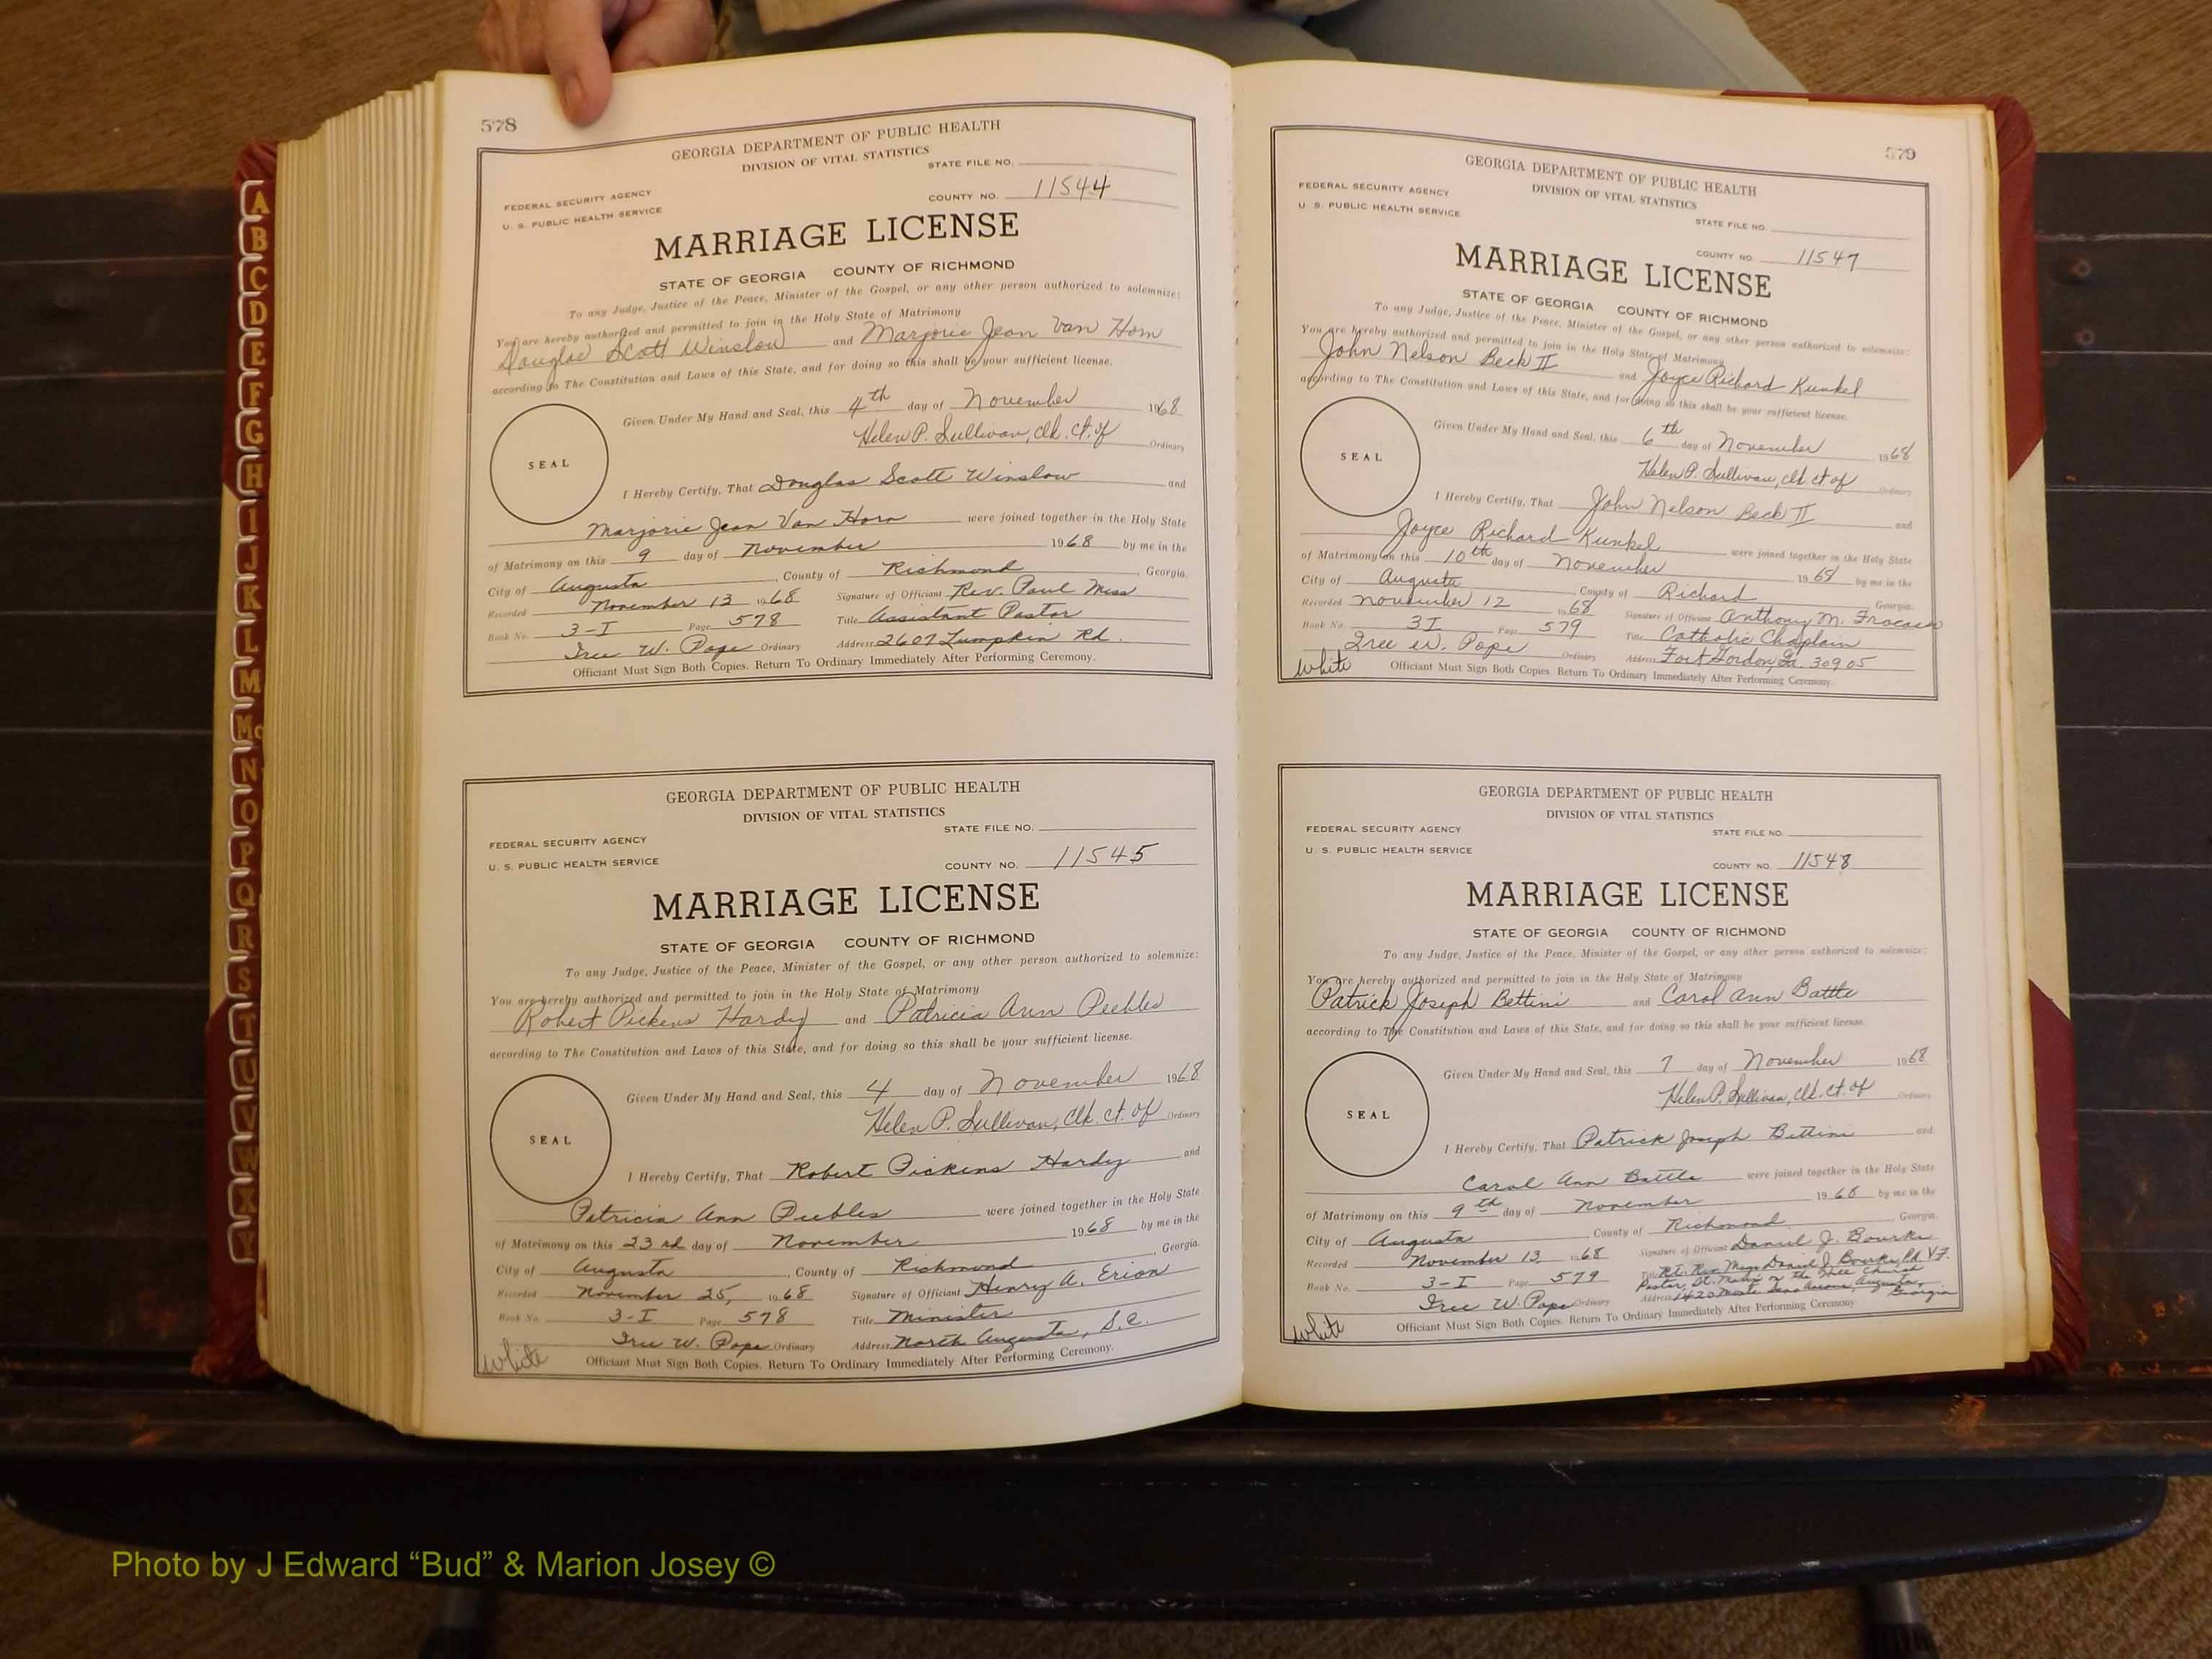 A
B
C
D
E
F
G
H
I
J
K
L
M
Mc
N
O
P
Q
R
S
T
U
V
W
X
Y
578
GEORGIA DEPARTMENT OF PUBLIC HEALTH
DIVISION OF VITAL STATISTICS
STATE FILE NO.
FEDERAL SECURITY AGENCY
U. S. PUBLIC HEALTH SERVICE
COUNTY NO. 11544
MARRIAGE LICENSE
STATE OF GEORGIA COUNTY OF RICHMOND
To any Judge, Justice of the Peace, Minister of the Gospel, or any other person authorized to solemnize:
You are hereby authorized and permitted to join in the Holy State of Matrimony
Douglas Scott Winslow and Marjorie Jean Van Horn
according to The Constitution and Laws of this State, and for doing so this shall be your sufficient license.
Given Under My Hand and Seal, this 4th day of November 1968
Helen P. Sullivan, Clk. Ct. of Ordinary
SEAL
I Hereby Certify, That Douglas Scott Winslow and
Marjorie Jean Van Horn were joined together in the Holy State
of Matrimony on this 9 day of November 1968 by me in the
City of Augusta, County of Richmond, Georgia.
Recorded November 13 1968 Signature of Officiant Rev. Paul Miss
Book No. 3-I Page 578 Title Assistant Pastor
Iree W. Pope Ordinary Address 2607 Lumpkin Rd.
Officiant Must Sign Both Copies. Return To Ordinary Immediately After Performing Ceremony.
GEORGIA DEPARTMENT OF PUBLIC HEALTH
DIVISION OF VITAL STATISTICS
STATE FILE NO.
FEDERAL SECURITY AGENCY
U. S. PUBLIC HEALTH SERVICE
COUNTY NO. 11545
MARRIAGE LICENSE
STATE OF GEORGIA COUNTY OF RICHMOND
To any Judge, Justice of the Peace, Minister of the Gospel, or any other person authorized to solemnize:
You are hereby authorized and permitted to join in the Holy State of Matrimony
Robert Pickens Hardy and Patricia Ann Peebles
according to The Constitution and Laws of this State, and for doing so this shall be your sufficient license.
Given Under My Hand and Seal, this 4 day of November 1968
Helen P. Sullivan, Clk. Ct. of Ordinary
SEAL
I Hereby Certify, That Robert Pickens Hardy and
Patricia Ann Peebles were joined together in the Holy State
of Matrimony on this 23rd day of November 1968 by me in the
City of Augusta, County of Richmond, Georgia.
Recorded November 25, 1968 Signature of Officiant Henry A. Erion
Book No. 3-I Page 578 Title Minister
Iree W. Pope Ordinary Address North Augusta, S.C.
white Officiant Must Sign Both Copies. Return To Ordinary Immediately After Performing Ceremony.
579
GEORGIA DEPARTMENT OF PUBLIC HEALTH
DIVISION OF VITAL STATISTICS
FEDERAL SECURITY AGENCY
U. S. PUBLIC HEALTH SERVICE
STATE FILE NO.
COUNTY NO. 11547
MARRIAGE LICENSE
STATE OF GEORGIA COUNTY OF RICHMOND
To any Judge, Justice of the Peace, Minister of the Gospel, or any other person authorized to solemnize:
You are hereby authorized and permitted to join in the Holy State of Matrimony
John Nelson Beck II and Joyce Richard Kunkel
according to The Constitution and Laws of this State, and for doing so this shall be your sufficient license.
Given Under My Hand and Seal, this 6th day of November 1968
Helen P. Sullivan, Clk. Ct. of Ordinary
SEAL
I Hereby Certify, That John Nelson Beck II and
Joyce Richard Kunkel were joined together in the Holy State
of Matrimony on this 10th day of November 1968 by me in the
City of Augusta County of Richard Georgia.
Recorded November 12 1968 Signature of Officiant Anthony M.
Book No. 3I Page 579 Title Catholic Chaplain
Iree W. Pope Ordinary Address Fort Gordon, Ga. 30905
White Officiant Must Sign Both Copies. Return To Ordinary Immediately After Performing Ceremony.
GEORGIA DEPARTMENT OF PUBLIC HEALTH
DIVISION OF VITAL STATISTICS
FEDERAL SECURITY AGENCY
STATE FILE NO.
U. S. PUBLIC HEALTH SERVICE
COUNTY NO. 11548
MARRIAGE LICENSE
STATE OF GEORGIA COUNTY OF RICHMOND
To any Judge, Justice of the Peace, Minister of the Gospel, or any other person authorized to solemnize:
You are hereby authorized and permitted to join in the Holy State of Matrimony
Patrick Joseph Bettini and Carol Ann Battle
according to The Constitution and Laws of this State, and for doing so this shall be your sufficient license.
Given Under My Hand and Seal, this 7 day of November 1968
Helen P. Sullivan, Clk. Ct. of Ordinary
SEAL
I Hereby Certify, That Patrick Joseph Bettini and
Carol Ann Battle were joined together in the Holy State
of Matrimony on this 9th day of November 1968 by me in the
City of Augusta, County of Richmond, Georgia.
Recorded November 13, 1968 Signature of Officiant Daniel J. Bourke
Book No. 3-I Page 579 Title Rt. Rev. Msgr. Daniel J. Bourke, P.A. V.F.
Pastor, St. Mary on the Hill Church
Iree W. Pope Ordinary Address 1420 Monte Sano Avenue, Augusta, Georgia
White Officiant Must Sign Both Copies. Return To Ordinary Immediately After Performing Ceremony.
Photo by J Edward “Bud” & Marion Josey ©